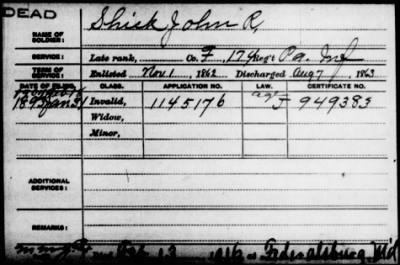 DEAD
NAME OF SOLDIER: Shick, John R.
SERVICE: Late rank, Co. F, 174 Reg't Pa. Inf
TERM OF SERVICE: Enlisted Nov 1, 1862 Discharged Aug 7, 1863
DATE OF FILING. CLASS. APPLICATION NO. LAW. CERTIFICATE NO.
1893 Jan 31 Invalid, 1145176 F 949383
Widow,
Minor,
ADDITIONAL SERVICES:
REMARKS:
13 1916 Federalsburg Md